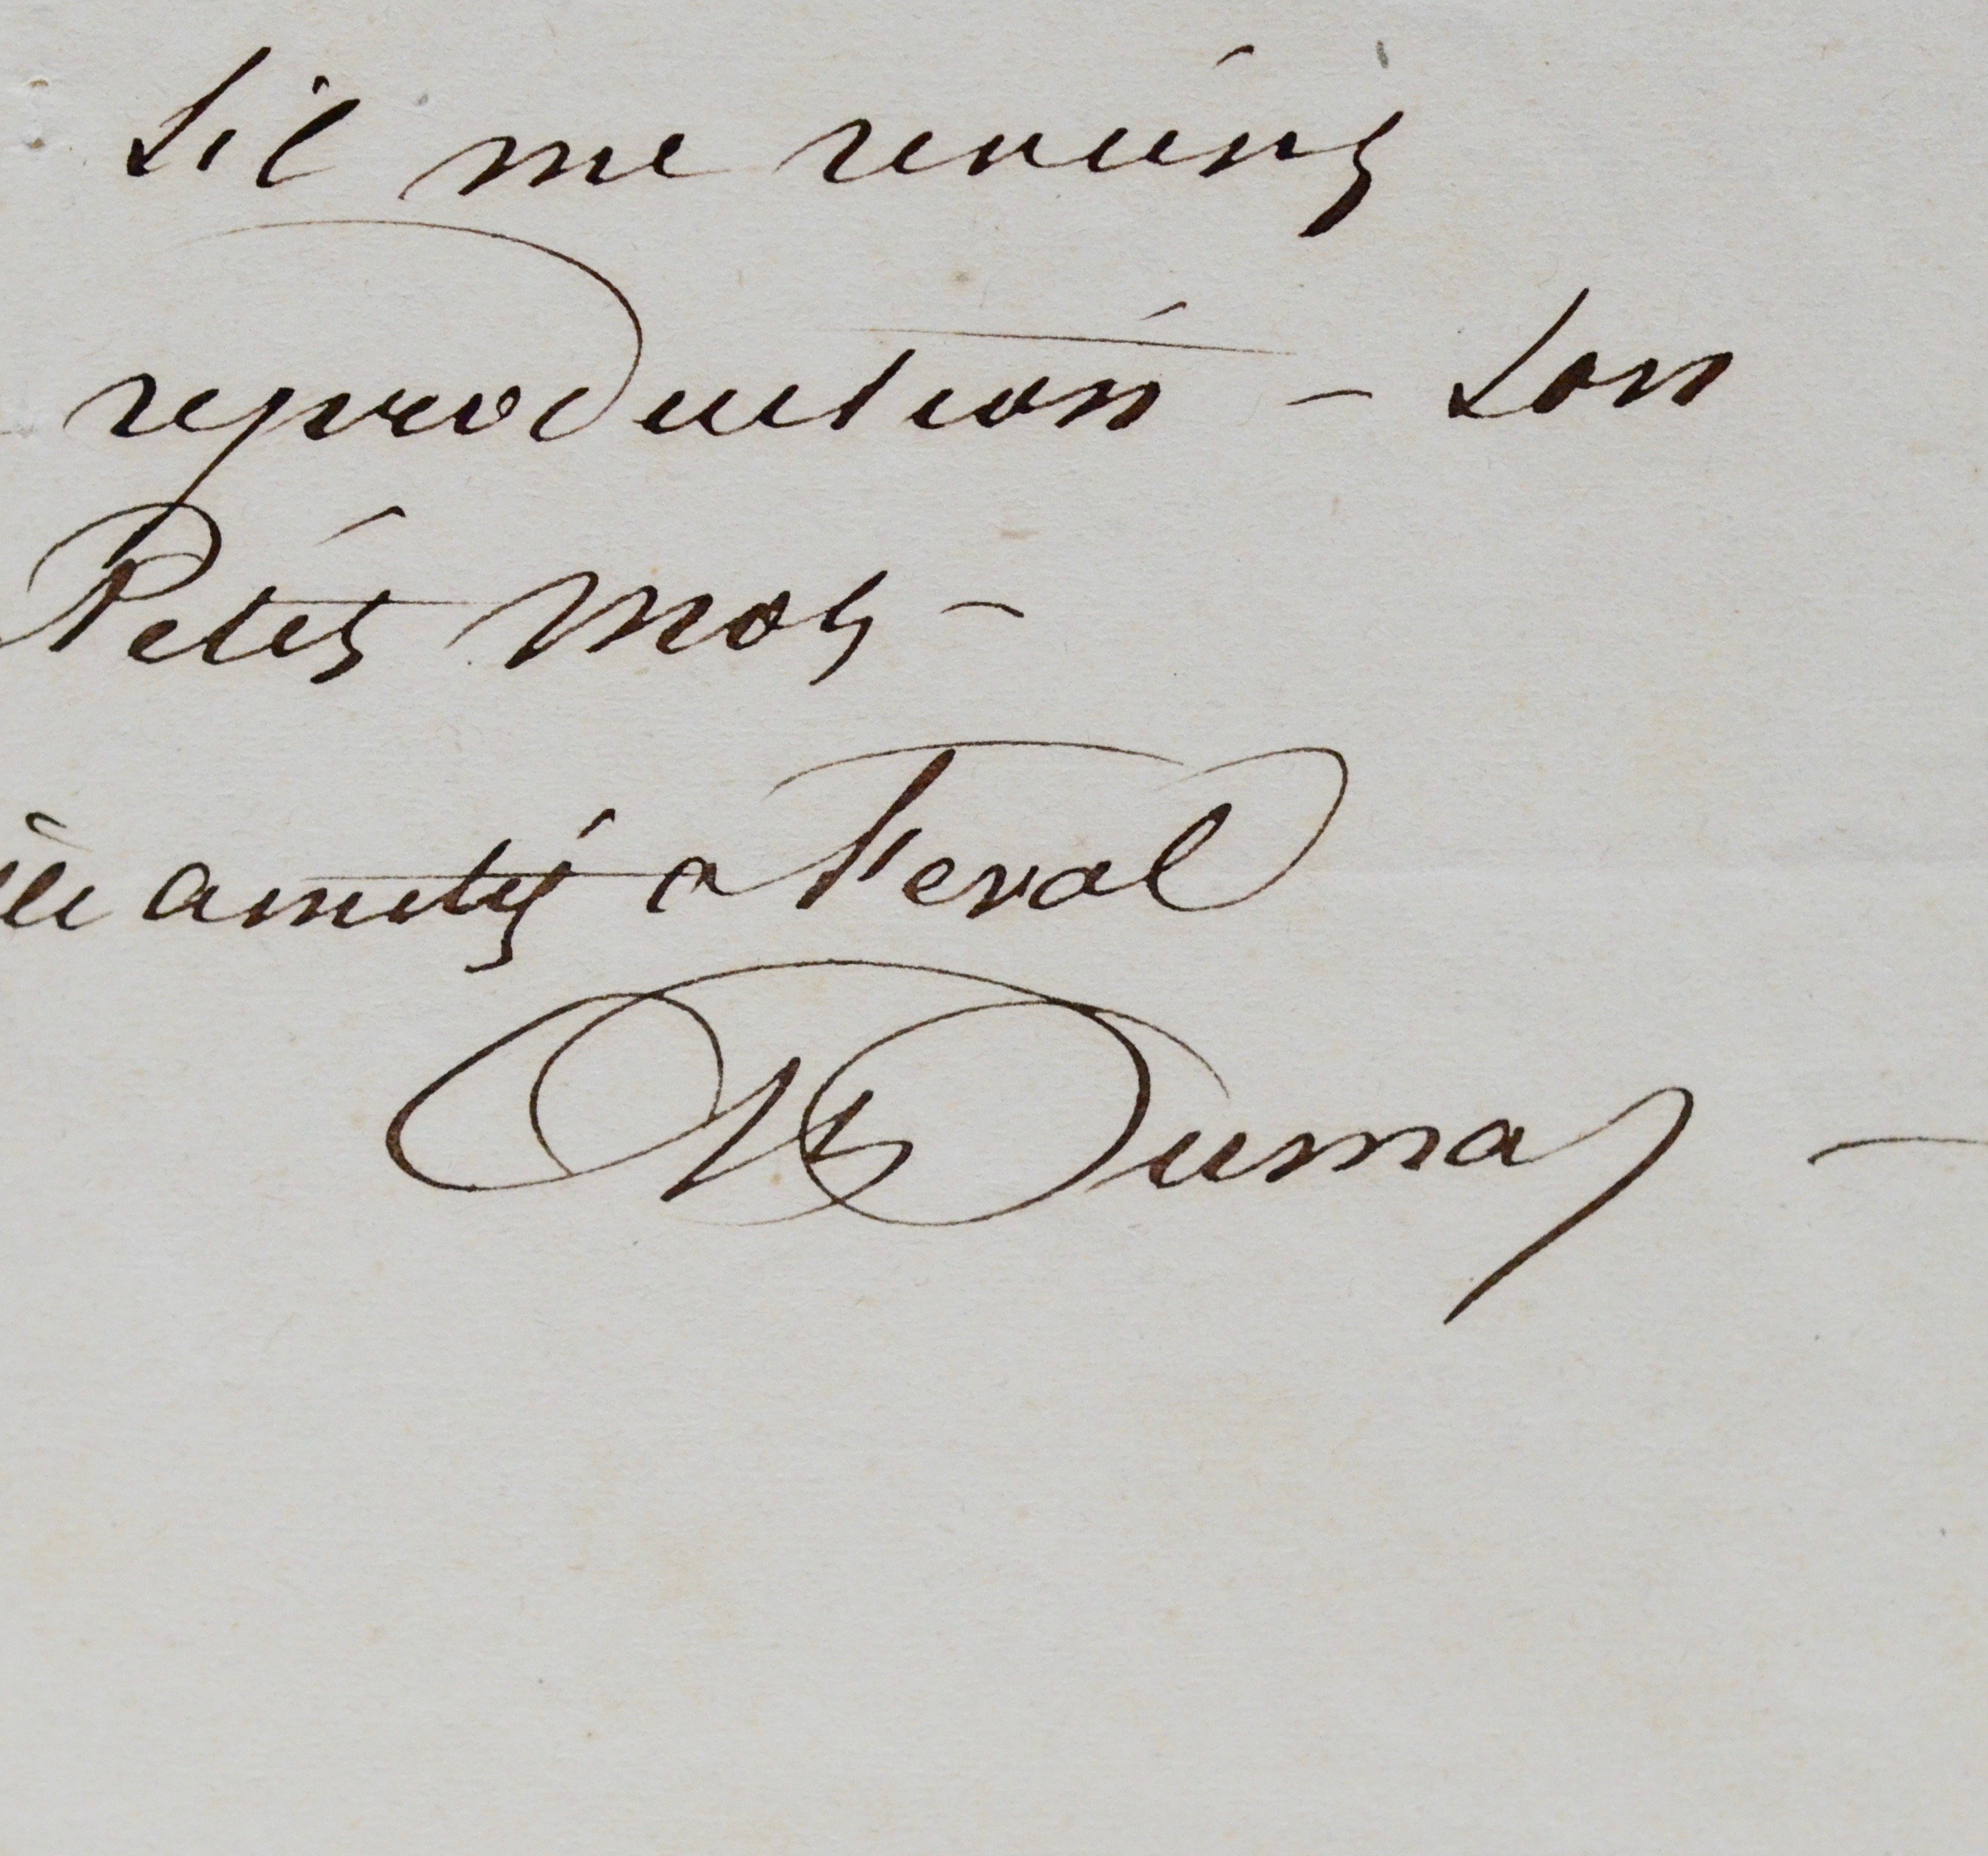 s'il me revient
reproduction – son
Petit mot –
amitié a Feval
Dumas –